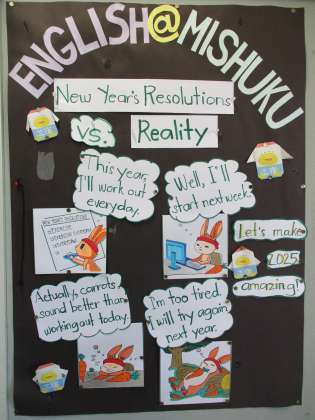 ENGLISH@MISHUKU
New Year's Resolutions
vs.
Reality
This year,
I'll work out
everyday.
Well, I'll
start next week.
Actually, carrots
sound better than
working out today.
I'm too tired.
I will try again
next year.
Let's make
2025
amazing!